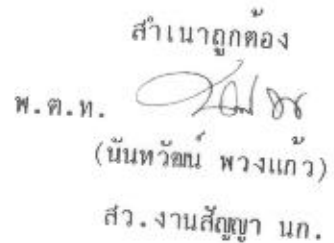 สำเนาถูกต้อง
พ.ต.ท.
(นันทวัฒน์ พวงแก้ว)
สว.งานสัญญา นก.